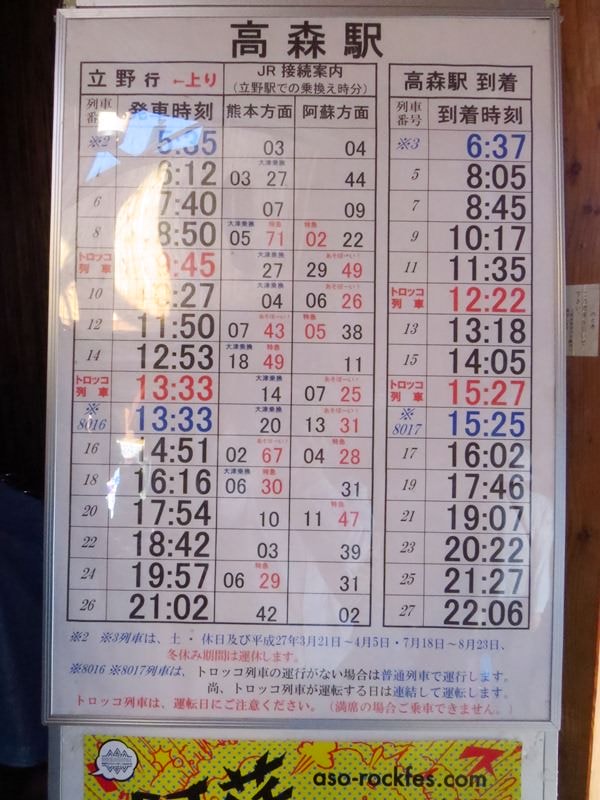 高森駅
立野行 ←上り JR 接続案内 (立野駅での乗換え時分) 高森駅 到着
列車番号 発車時刻 熊本方面 阿蘇方面 列車番号 到着時刻
※2 5:35 03 04 ※3 6:37
6:12 大津乗換 03 27 44 5 8:05
6 7:40 07 09 7 8:45
8 8:50 大津乗換 05 特急 71 特急 02 22 9 10:17
トロッコ列車 9:45 大津乗換 27 29 あそぼーい! 49 11 11:35
10 10:27 大津乗換 04 06 特急 26 トロッコ列車 12:22
12 11:50 07 あそぼーい! 43 特急 05 38 13 13:18
14 12:53 大津乗換 18 特急 49 11 15 14:05
トロッコ列車 13:33 大津乗換 14 07 あそぼーい! 25 トロッコ列車 15:27
※8016 13:33 大津乗換 20 13 あそぼーい! 31 ※8017 15:25
16 14:51 02 あそぼーい! 67 04 特急 28 17 16:02
18 16:16 大津乗換 06 特急 30 31 19 17:46
20 17:54 10 11 特急 47 21 19:07
22 18:42 03 39 23 20:22
24 19:57 06 特急 29 31 25 21:27
26 21:02 42 02 27 22:06
※2 ※3列車は、土・休日及び平成27年3月21日～4月5日・7月18日～8月23日、
冬休み期間は運休します。
※8016 ※8017列車は、トロッコ列車の運行がない場合は普通列車で運行します。
尚、トロッコ列車が運転する日は連結して運転します。
トロッコ列車は、運転日にご注意ください。(満席の場合ご乗車できません。)
aso-rockfes.com